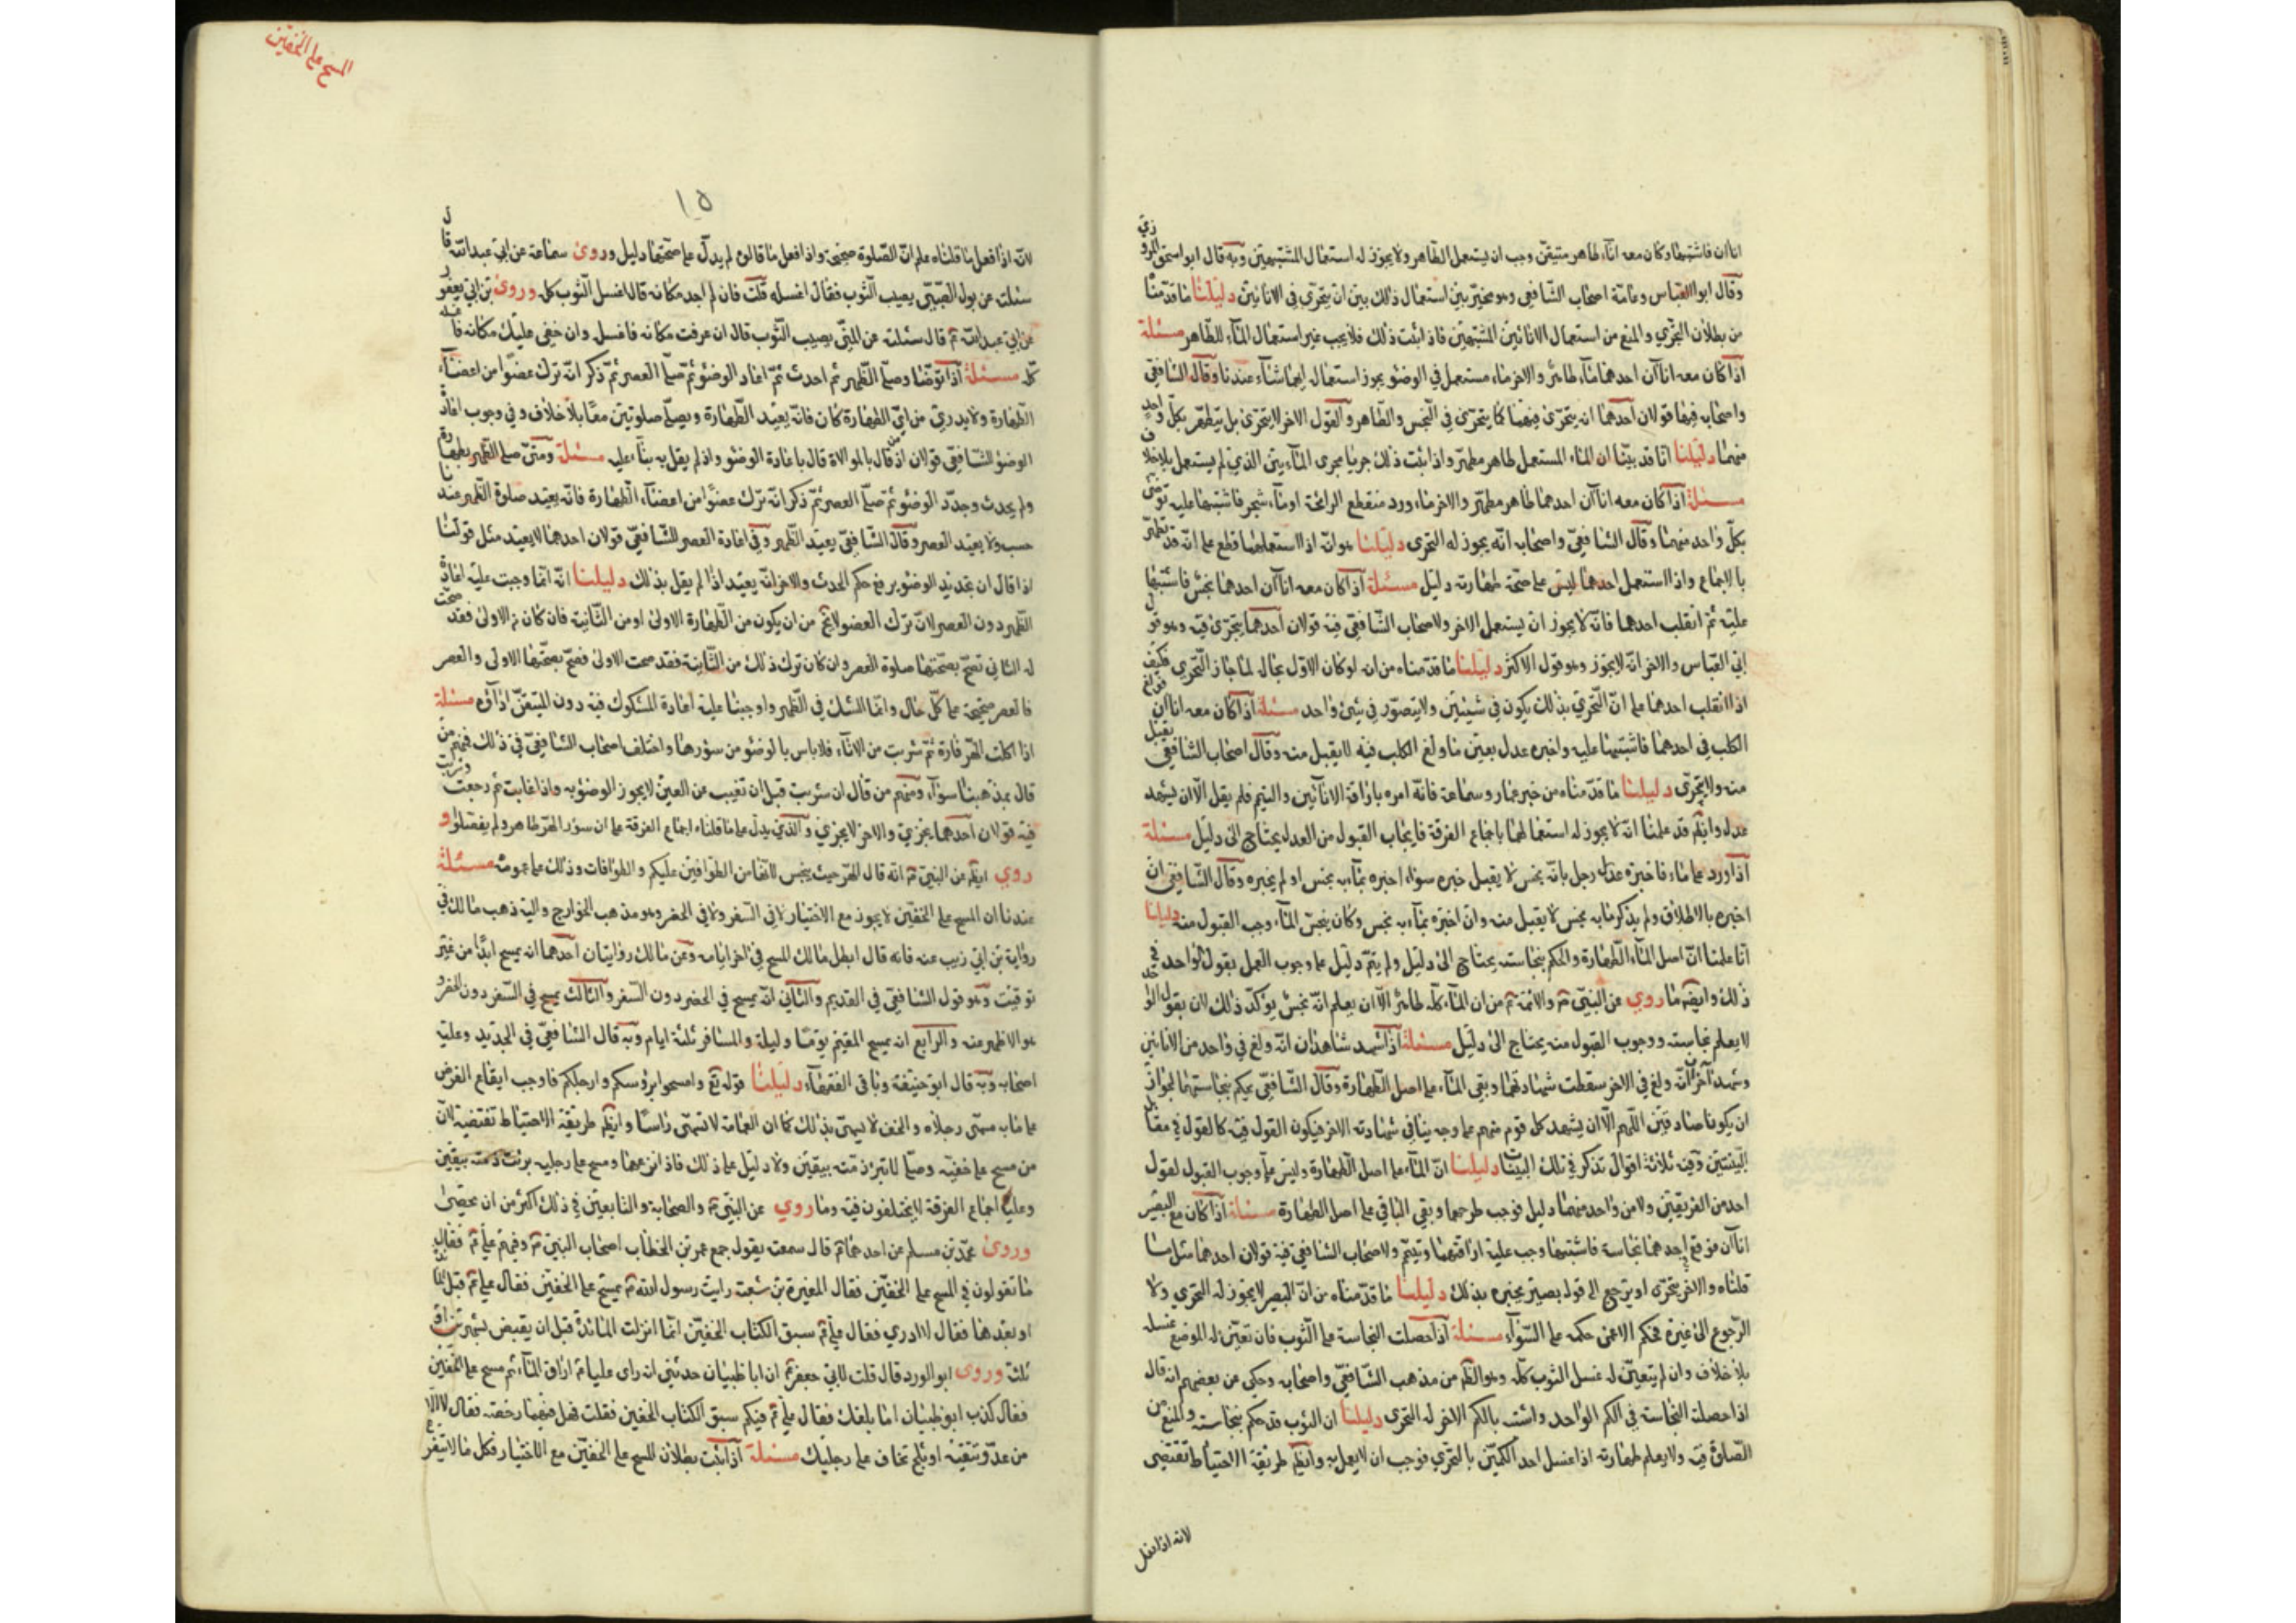 اناآن فاشتبها وكان معه اناء طاهر متيقن وجب ان يستعمل الطاهر ولا يجوز له استعمال المشتبهين وبه قال ابو اسحق المروزي
وقال ابو العباس وعامة اصحاب الشافعي وهو مخير بين استعمال ذلك بين ان يتحرى في الانائين دليلنا ما قدمنا
من بطلان التحري والمنع من استعمال الانائين المشتبهين فاذا ثبت ذلك فلا يجب غير استعمال الماء الطاهر مسئلة
اذا كان معه اناآن احدهما ماء طاهر والاخر ماء مستعمل في الوضوء يجوز استعمال ايهما شاء عندنا وقال الشافعي
واصحابه فيها قولان احدهما انه يتحرى فيهما كما يتحرى في النجس والطاهر والقول الاخر لا يتحرى بل يتطهر بكل واحد
منهما دليلنا انا قد بينا ان الماء المستعمل طاهر مطهر واذا ثبت ذلك جريا مجرى المائين الذي لم يستعمل بلا خلاف
مسئلة اذا كان معه اناآن احدهما طاهر مطهر والاخر ماء ورد منقطع الرائحة او ماء شجر فاشتبها عليه توضى
بكل واحد منهما وقال الشافعي واصحابه انه يجوز له التحرى دليلنا هو انه اذا استعملهما قطع على انه قد تطهر
بالاجماع واذا استعمل احدهما ليس على صحة طهارته دليل مسئلة اذا كان معه اناآن احدهما نجس فاشتبها
عليه ثم انقلب احدهما فانه لا يجوز ان يستعمل الاخر ولاصحاب الشافعي فيه قولان احدهما يتحرى فيه وهو قول
ابي العباس والاخر انه لا يجوز وهو قول الاكثر دليلنا ما قدمناه من انه لو كان الاول بحاله لما جاز التحري فكيف
اذا انقلب احدهما على ان التحري بذلك يكون في شيئين ولا يتصور في شئ واحد مسئلة اذا كان معه اناآن فولغ
الكلب في احدهما فاشتبها عليه واخبره عدل بعين ما ولغ الكلب فيه لا يقبل منه وقال اصحاب الشافعي يقبل
منه ولا يتحرى دليلنا ما قدمناه من خبر عمار وسماعة فانه امره باراقة الانائين والتيمم فلم يقل الا ان يشهد
عدل وايضا قد علمنا انه لا يجوز له استعمالهما باجماع الفرقة فايجاب القبول من العدل يحتاج الى دليل مسئلة
اذا ورد على ماء فاخبره عدل رجل بانه نجس لا يقبل خبره سواء اخبره بمآ به نجس او لم يخبره وقال الشافعي ان
اخبره بالاطلاق ولم يذكر مابه نجس لا يقبل منه وان اخبره بمآ به نجس وكان ينجس الماء وجب القبول منه دليلنا
انا علمنا ان اصل الماء الطهارة والحكم بنجاسته يحتاج الى دليل ولم يتم دليل على وجوب العمل بقول الواحد في
ذلك وايضا ما روي عن النبي والائمة من ان الماء كله طاهر الا ان يعلم انه نجس يؤكد ذلك لان بقول الواحد
لا يعلم نجاسته ووجوب القبول منه يحتاج الى دليل مسئلة اذا شهد شاهدان انه ولغ في واحد من الانائين
وشهد آخران انه ولغ في الاخر سقطت شهادتهما وبقي الماء على اصل الطهارة وقال الشافعي يحكم بنجاستهما لجواز
ان يكونا صادقين اللهم الا ان يشهد كل قوم منهم على وجه ينافي شهادته الاخر فيكون القول فيه كالقول في مقابل
البينتين وفيه ثلاثة اقوال تذكر في تلك البينات دليلنا ان الماء على اصل الطهارة وليس على وجوب القبول لقول
احد من الفريقين ولا من واحد منهما دليل فوجب طرحهما وبقي الباقي على اصل الطهارة مسئلة اذا كان مع البصير
اناآن فوقع في احدهما نجاسة فاشتبها وجب عليه اراقتهما وتيمم ولاصحاب الشافعي فيه قولان احدهما مثل ما
قلناه والاخر يتحرى او يرجع الى قول بصير يخبره بذلك دليلنا ما قدمناه من ان البصير لا يجوز له التحري ولا
الرجوع الى غيره فحكم الاعمى حكمه على السواء مسئلة اذا حصلت النجاسة على الثوب فان تعين له الموضع غسله
بلا خلاف وان لم يتعين له غسل الثوب كله وهو الظاهر من مذهب الشافعي واصحابه وحكي عن بعضهم انه قال
اذا حصلت النجاسة في الكم الواحد واشتبه بالكم الاخر له التحرى دليلنا ان الثوب قد حكم بنجاسته والمنع من
الصلوة فيه ولا يعلم طهارته اذا غسل احد الكمين بالتحري فوجب ان لا يعمل به وايضا طريقة الاحتياط تقتضي
لانه اذا فعل
المسح على الخفين
١٥
لانه اذا فعل ما قلناه علم ان الصلوة صحيحة واذا فعل ما قالوه لم يدل على صحتها دليل وروى سماعة عن ابي عبد الله قال
سئلته عن بول الصبي يصيب الثوب فقال اغسله قلت فان لم اجد مكانه قال اغسل الثوب كله وروى بن ابي يعفور
عن ابي عبد الله قال سئلته عن المني يصيب الثوب قال ان عرفت مكانه فاغسل وان خفي عليك مكانه فاغسله
كله مسئلة اذا توضا وصلى الظهر ثم احدث ثم اعاد الوضوء ثم صلى العصر ثم ذكر انه ترك عضوا من اعضاء
الطهارة ولا يدري من اي الطهارة كان فانه يعيد الطهارة ويصلى صلوتين معا بلا خلاف وفي وجوب اعادة
الوضوء للشافعي قولان اذ قال بالموالاة قال باعادة الوضوء واذ لم يقل به بنآء عليه مسئلة ومتى صلى الظهر بطهارة
ولم يحدث وجدد الوضوء ثم صلى العصر ثم ذكر انه ترك عضوا من اعضاء الطهارة فانه يعيد صلوة الظهر عندنا
حسب ولا يعيد العصر وقال الشافعي يعيد الظهر وفي اعادة العصر للشافعي قولان احدهما لا يعيد مثل قولنا
اذا قال ان تجديد الوضوء يرفع حكم الحدث والاخر انه يعيد اذا لم يقل بذلك دليلنا انه انما وجبت عليه اعادة
الظهر دون العصر لان ترك العضو لا يخ من ان يكون من الطهارة الاولى او من الثانية فان كان من الاولى فقد صحت
له الثاني تصح بصحتها صلوة العصر وان كان ترك ذلك من الثانية فقد صحت الاولى فصح بصحتها الاولى والعصر
فالعصر صحيحة على كل حال وانما الشك في الظهر واوجبنا عليه اعادة المشكوك فيه دون المتيقن اداؤه مسئلة
اذا اكلت الهر فارة ثم شربت من الاناء فلا باس بالوضوء من سؤرها واختلف اصحاب الشافعي في ذلك فمنهم من
قال بمذهبنا سواء ومنهم من قال ان شربت قبل ان تغيب عن العين لا يجوز الوضوء به واذا غابت ثم رجعت وشربت
فيه قولان احدهما يجزي والاخر لا يجزي والذي يدل على ما قلناه اجماع الفرقة على ان سؤر الهر طاهر ولم يفصلوا و
روي ايضا عن النبي انه قال الهر حيث ينجس لانها من الطوافين عليكم والطوافات وذلك على عمومه مسئلة
عندنا ان المسح على الخفين لا يجوز مع الاختيار لا في السفر ولا في الحضر وهو مذهب الخوارج واليه ذهب مالك في
رواية بن ابي زيب عنه فانه قال ابطل مالك المسح في اخر ايامه وعن مالك روايتان احدهما انه يمسح ابدا من غير
توقيت وهو قول الشافعي في القديم والثاني انه يمسح في الحضر دون السفر والثالث يمسح في السفر دون الحضر و
هو الاظهر عنه والرابع انه يمسح المقيم يوما وليلة والمسافر ثلثة ايام وبه قال الشافعي في الجديد وعليه
اصحابه وبه قال ابو حنيفة وباقي الفقهاء دليلنا قوله تع وامسحوا برؤسكم وارجلكم فاوجب ايقاع الفرض
على ما به مسمى رجلاه والخف لا يسمى بذلك كما ان العمامة لا تسمى راسا وايضا طريقة الاحتياط تقتضيه لان
من مسح على خفيه وصلى لا تبرئ ذمته بيقين ولا دليل على ذلك فاذا نزعهما ومسح على رجليه برئت ذمته بيقين
وعليه اجماع الفرقة لا يختلفون فيه وما روي عن النبي والصحابة والتابعين في ذلك اكثر من ان يحصى
وروى محمد بن مسلم عن احدهما قال سمعته يقول جمع عمر بن الخطاب اصحاب النبي وفيهم علي فقال
ما تقولون في المسح على الخفين فقال المغيرة بن شعبة رايت رسول الله يمسح على الخفين فقال علي قبل المائدة
او بعدها فقال لا ادري فقال علي سبق الكتاب الخفين انما انزلت المائدة قبل ان يقبض بشهرين او
ثلث وروى ابو الورد قال قلت لابي جعفر ان ابا ظبيان حدثني انه راى عليا اراق الماء ثم مسح على الخفين
فقال كذب ابو ظبيان اما بلغك فقال علي فيكم سبق الكتاب الخفين فقلت فهل فيهما رخصة فقال لا الا
من عدو تتقيه او ثلج تخاف على رجليك مسئلة اذا ثبت بطلان المسح على الخفين مع الاختيار فكل ما لا يتفرع